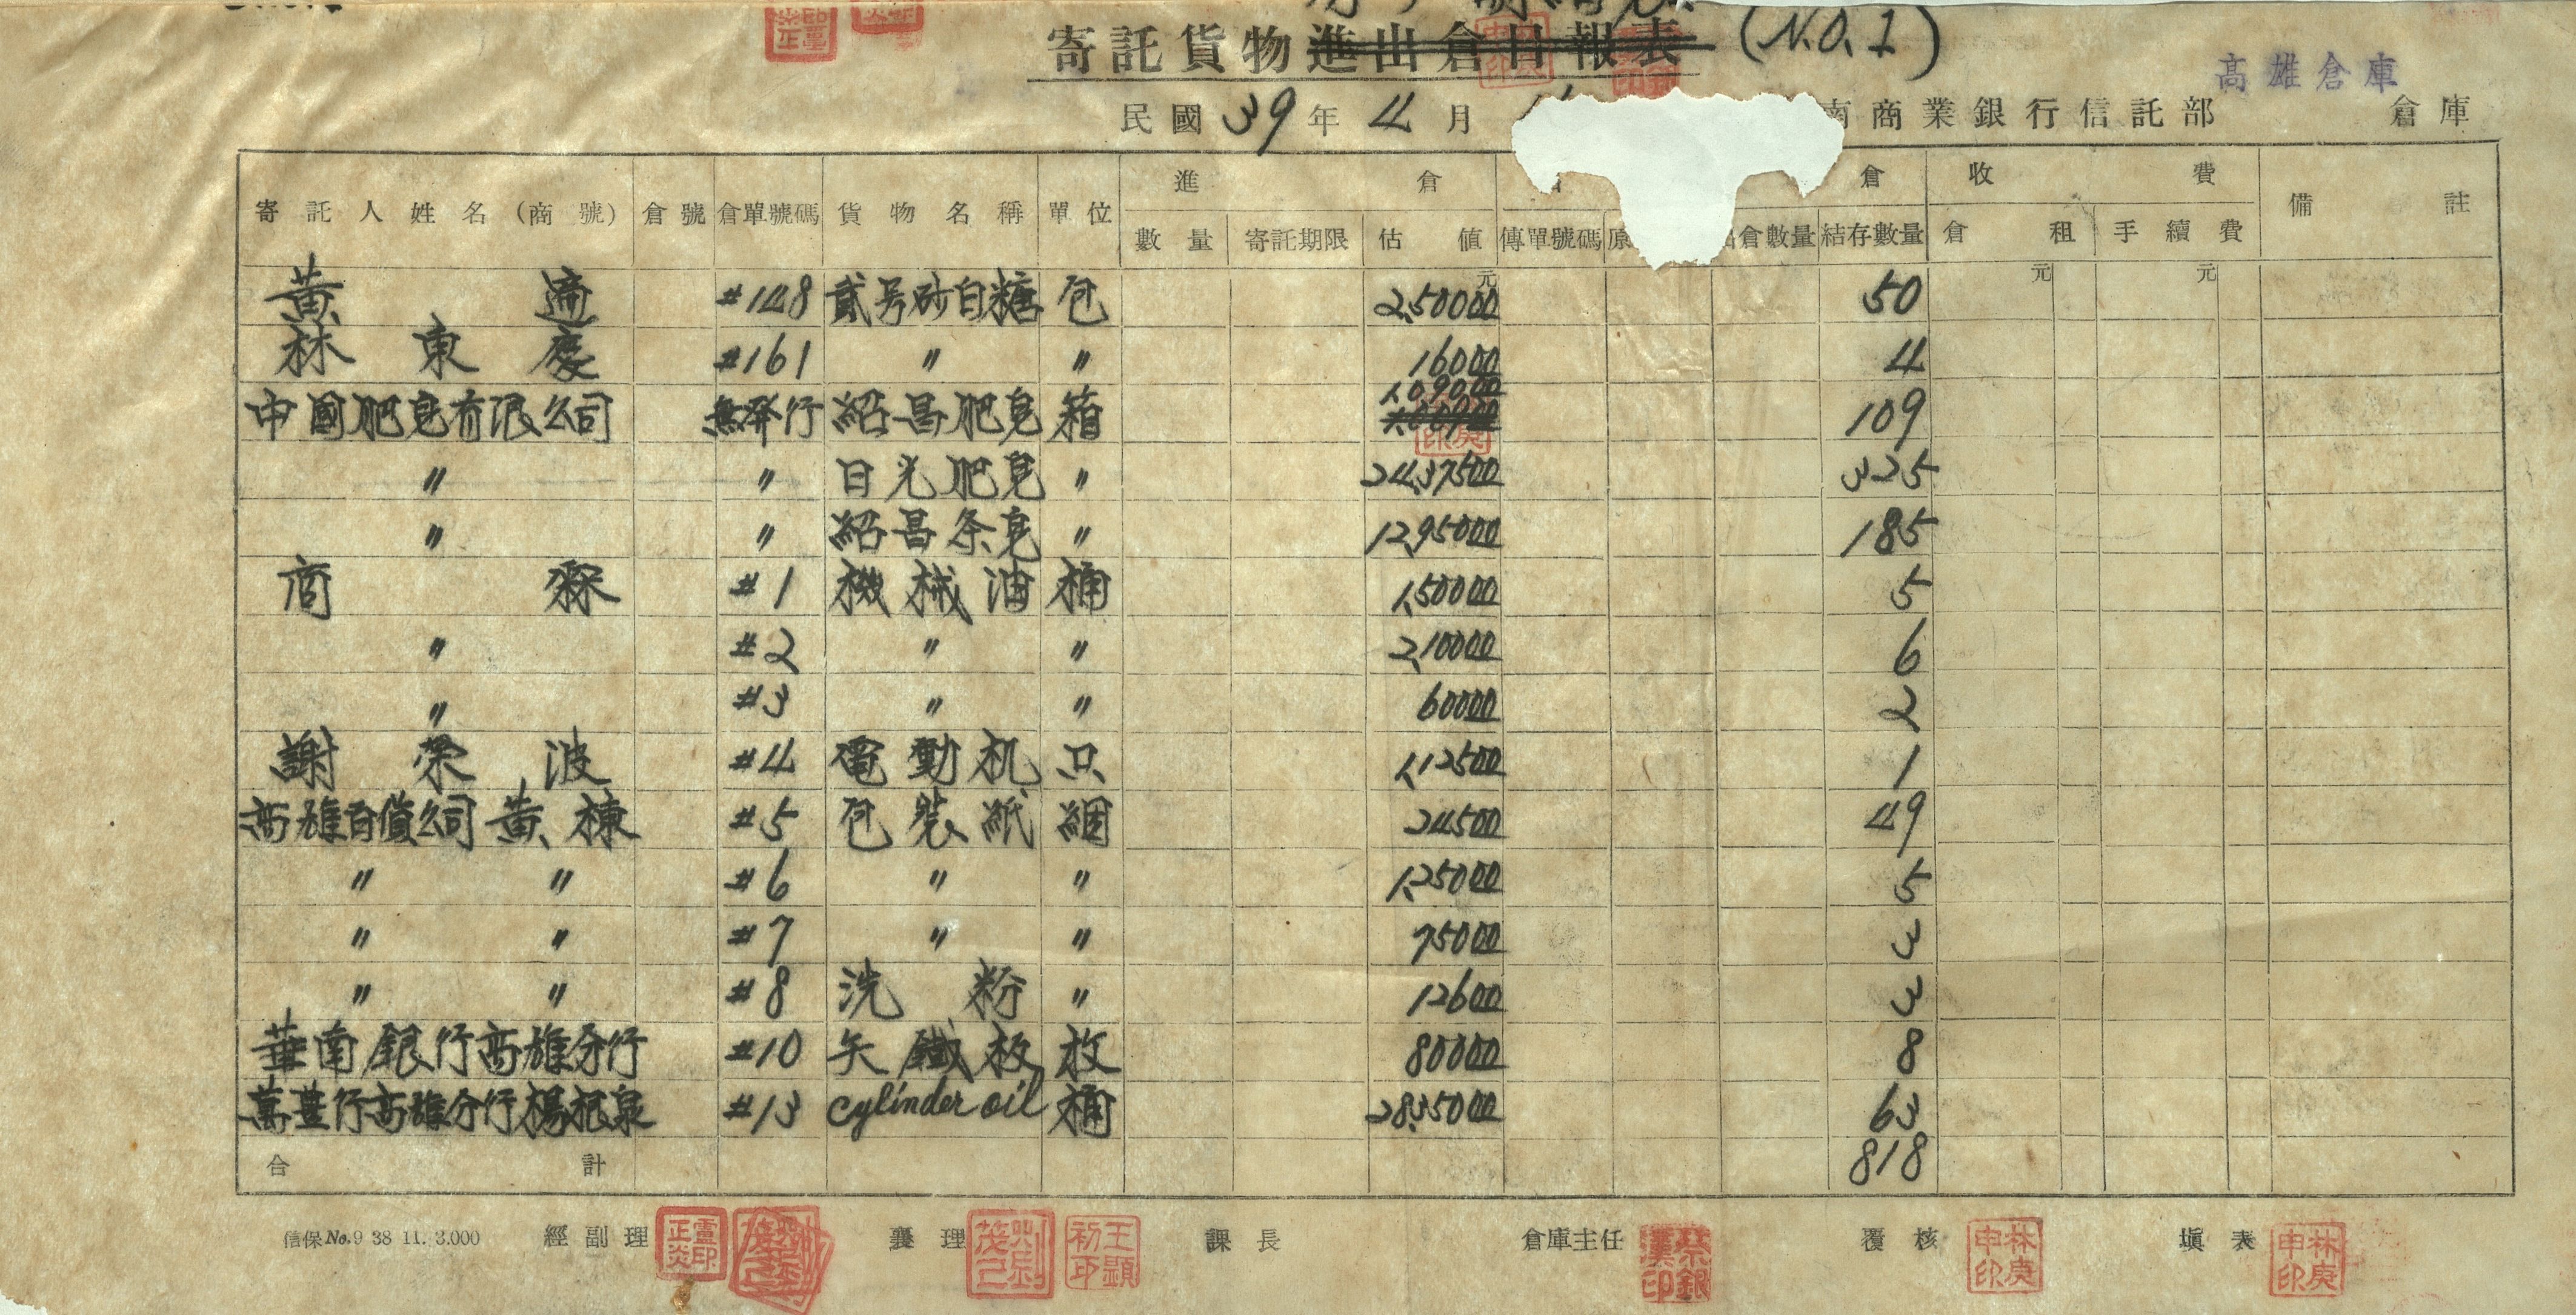 寄託貨物進出倉日報表 (N.O.1)
高雄倉庫
民國 39 年 4 月 南商業銀行信託部 倉庫
寄託人姓名(商號) 倉號 倉單號碼 貨物名稱 單位 進 倉 倉 收 費 備 註
數量 寄託期限 估值 傳單號碼 原 倉數量 結存數量 倉租 手續費
元 元 元
黃 #148 貳号砂白糖 包 2,50000 50
林東慶 #161 〃 〃 16000 4
1,09000
中國肥皂有限公司 無發行 紹昌肥皂 箱 109
〃 〃 日光肥皂 〃 24,37500 325
〃 〃 紹昌条皂 〃 12,95000 185
商 #1 機械油 桶 1,50000 5
〃 #2 〃 〃 2,10000 6
〃 #3 〃 〃 60000 2
謝榮波 #4 電動机 只 1,12500 1
高雄百貨公司 黃棟 #5 包裝紙 綑 24500 49
〃 〃 #6 〃 〃 1,25000 5
〃 〃 #7 〃 〃 75000 3
〃 〃 #8 洗粉 〃 12600 3
華南銀行高雄分行 #10 矢鐵板 枚 80000 8
萬豊行高雄分行楊根泉 #13 cylinder oil 桶 28,35000 63
合計 818
信保No.9 38 11. 3.000 經副理 襄理 課長 倉庫主任 覆核 填表
王顯初印 林庚申印 林庚申印